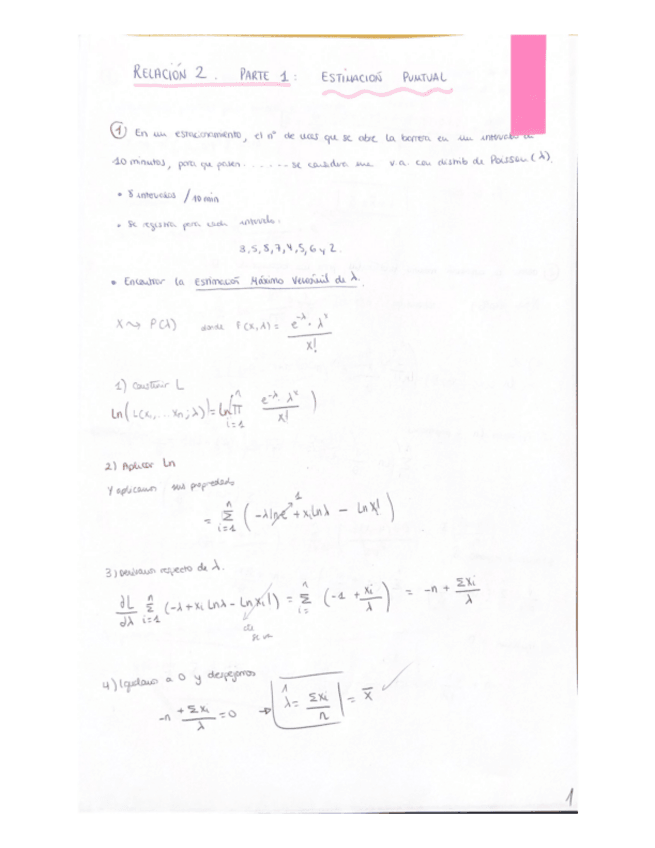 RELACIÓN 2. PARTE 1: ESTIMACIÓN PUNTUAL
① En un estacionamiento, el nº de veces que se abre la barrera en un intervalo de
10 minutos, para que pasen ...... se considera una v.a. con distrib de Poisson (λ).
• 8 intervalos / 10 min
• Se registra para cada intervalo:
3, 5, 8, 7, 4, 5, 6 y 2.
• Encontrar la Estimación Máximo Verosímil de λ.
X ⤳ P(λ) donde P(x,λ) = e^-λ · λ^x / x!
1) Construir L
Ln(L(x,...xn;λ)) = Ln(∏ i=1 n e^-λ · λ^x / x!)
2) Aplicar Ln
Y aplicamos sus propiedades
= Σ i=1 n (-λ ln e 1 + xi Ln λ - Ln x!)
3) Derivamos respecto de λ.
∂L/∂λ Σ i=1 n (-λ + xi Ln λ - Ln xi!) = Σ i= n (-1 + xi/λ) = -n + Σxi/λ
se va
4) Igualamos a 0 y despejamos
-n + Σxi/λ = 0 → λ̂ = Σxi/n = x̄ ✓
1